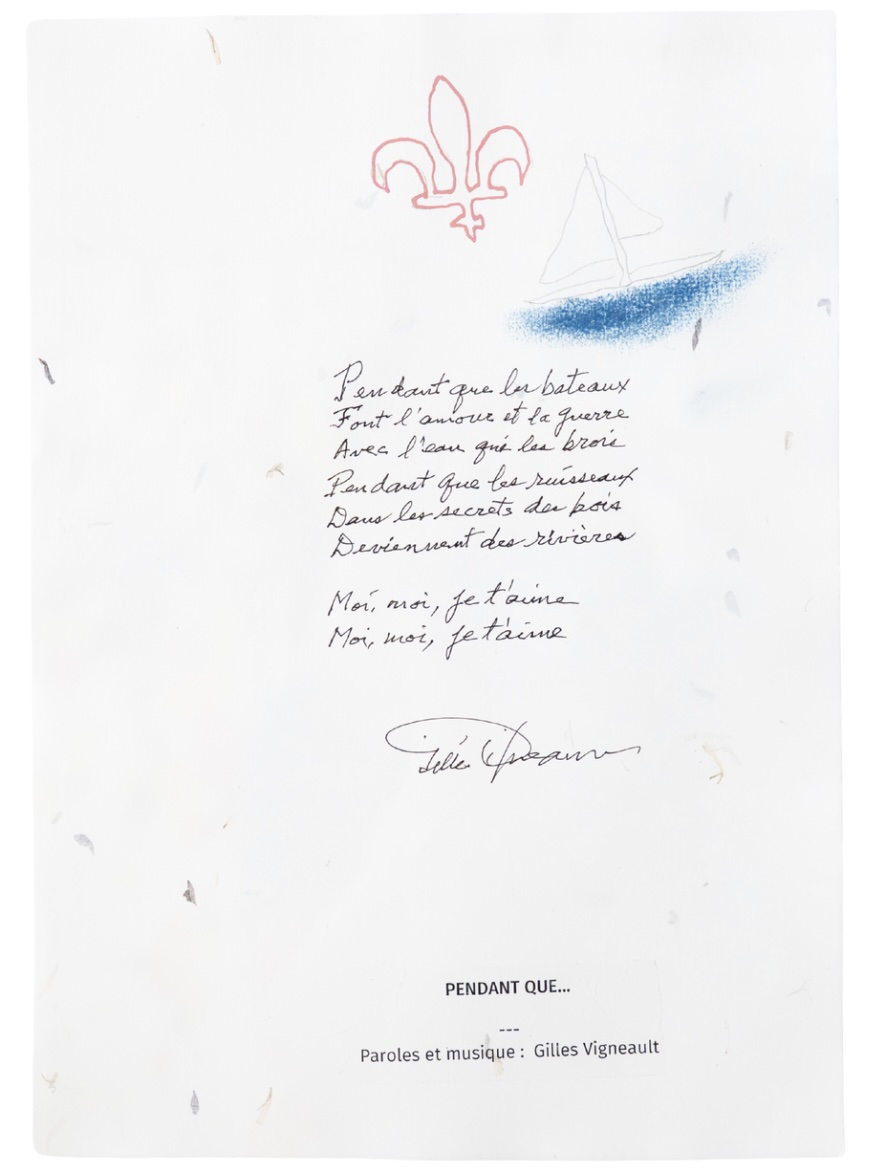 Pendant que les bateaux
Font l'amour et la guerre
Avec l'eau qui les broie
Pendant que les ruisseaux
Dans les secrets des bois
Deviennent des rivières
Moi, moi, je t'aime
Moi, moi, je t'aime
Gilles Vigneault
PENDANT QUE...
---
Paroles et musique : Gilles Vigneault